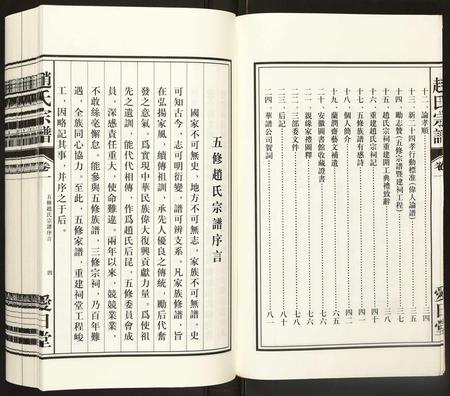 趙氏宗譜 卷一 愛日堂
十二、論孝順……三四
十三、新二四孝行動標準（偉人論譜）……三五
十四、勵志贊（五修宗譜暨建祠工程）……三七
十五、趙氏宗祠重建開工典禮致辭……三八
十六、重建趙氏宗祠記……四一
十七、五修族譜有感詩……四二
十八、個人簡介……四二
十九、蘭潤齋藝文補遺……六五
二十、安徽圖書館收藏證書……七六
二一、親緣家禮圖釋……七六
二二、三部委文件……七八
二三、后記……八一
二四、華譜公司賀詞……八一
五修趙氏宗譜序言
國家不可無史，地方不可無志，家族不可無譜。史
可知古今，志可明衍變，譜可辨支系。凡家族修譜，旨
在弘揚家風，續傳祖訓，承先人優良之傳統，勵后代奮
發之意氣。爲實現中華民族偉大復興貢獻力量。爲使祖
先之遺訓，能代代相傳，作爲趙氏后昆，五修委員會成
員，深感責任重大，使命難違。兩年以來，兢兢業業，
不敢絲毫懈怠。能參與五修族譜，三修宗祠，乃百年難
遇，全族同心協力，至此，五修家譜，重建祠堂工程峻
工，因略記其事，并序之于后。
趙氏宗譜 卷一 五修趙氏宗譜序言 四 愛日堂